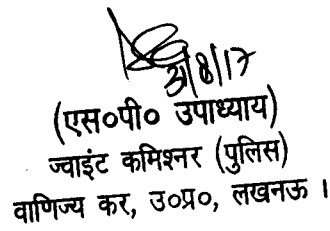 /8/17
(एस०पी० उपाध्याय)
ज्वाइंट कमिश्नर (पुलिस)
वाणिज्य कर, उ०प्र०, लखनऊ ।